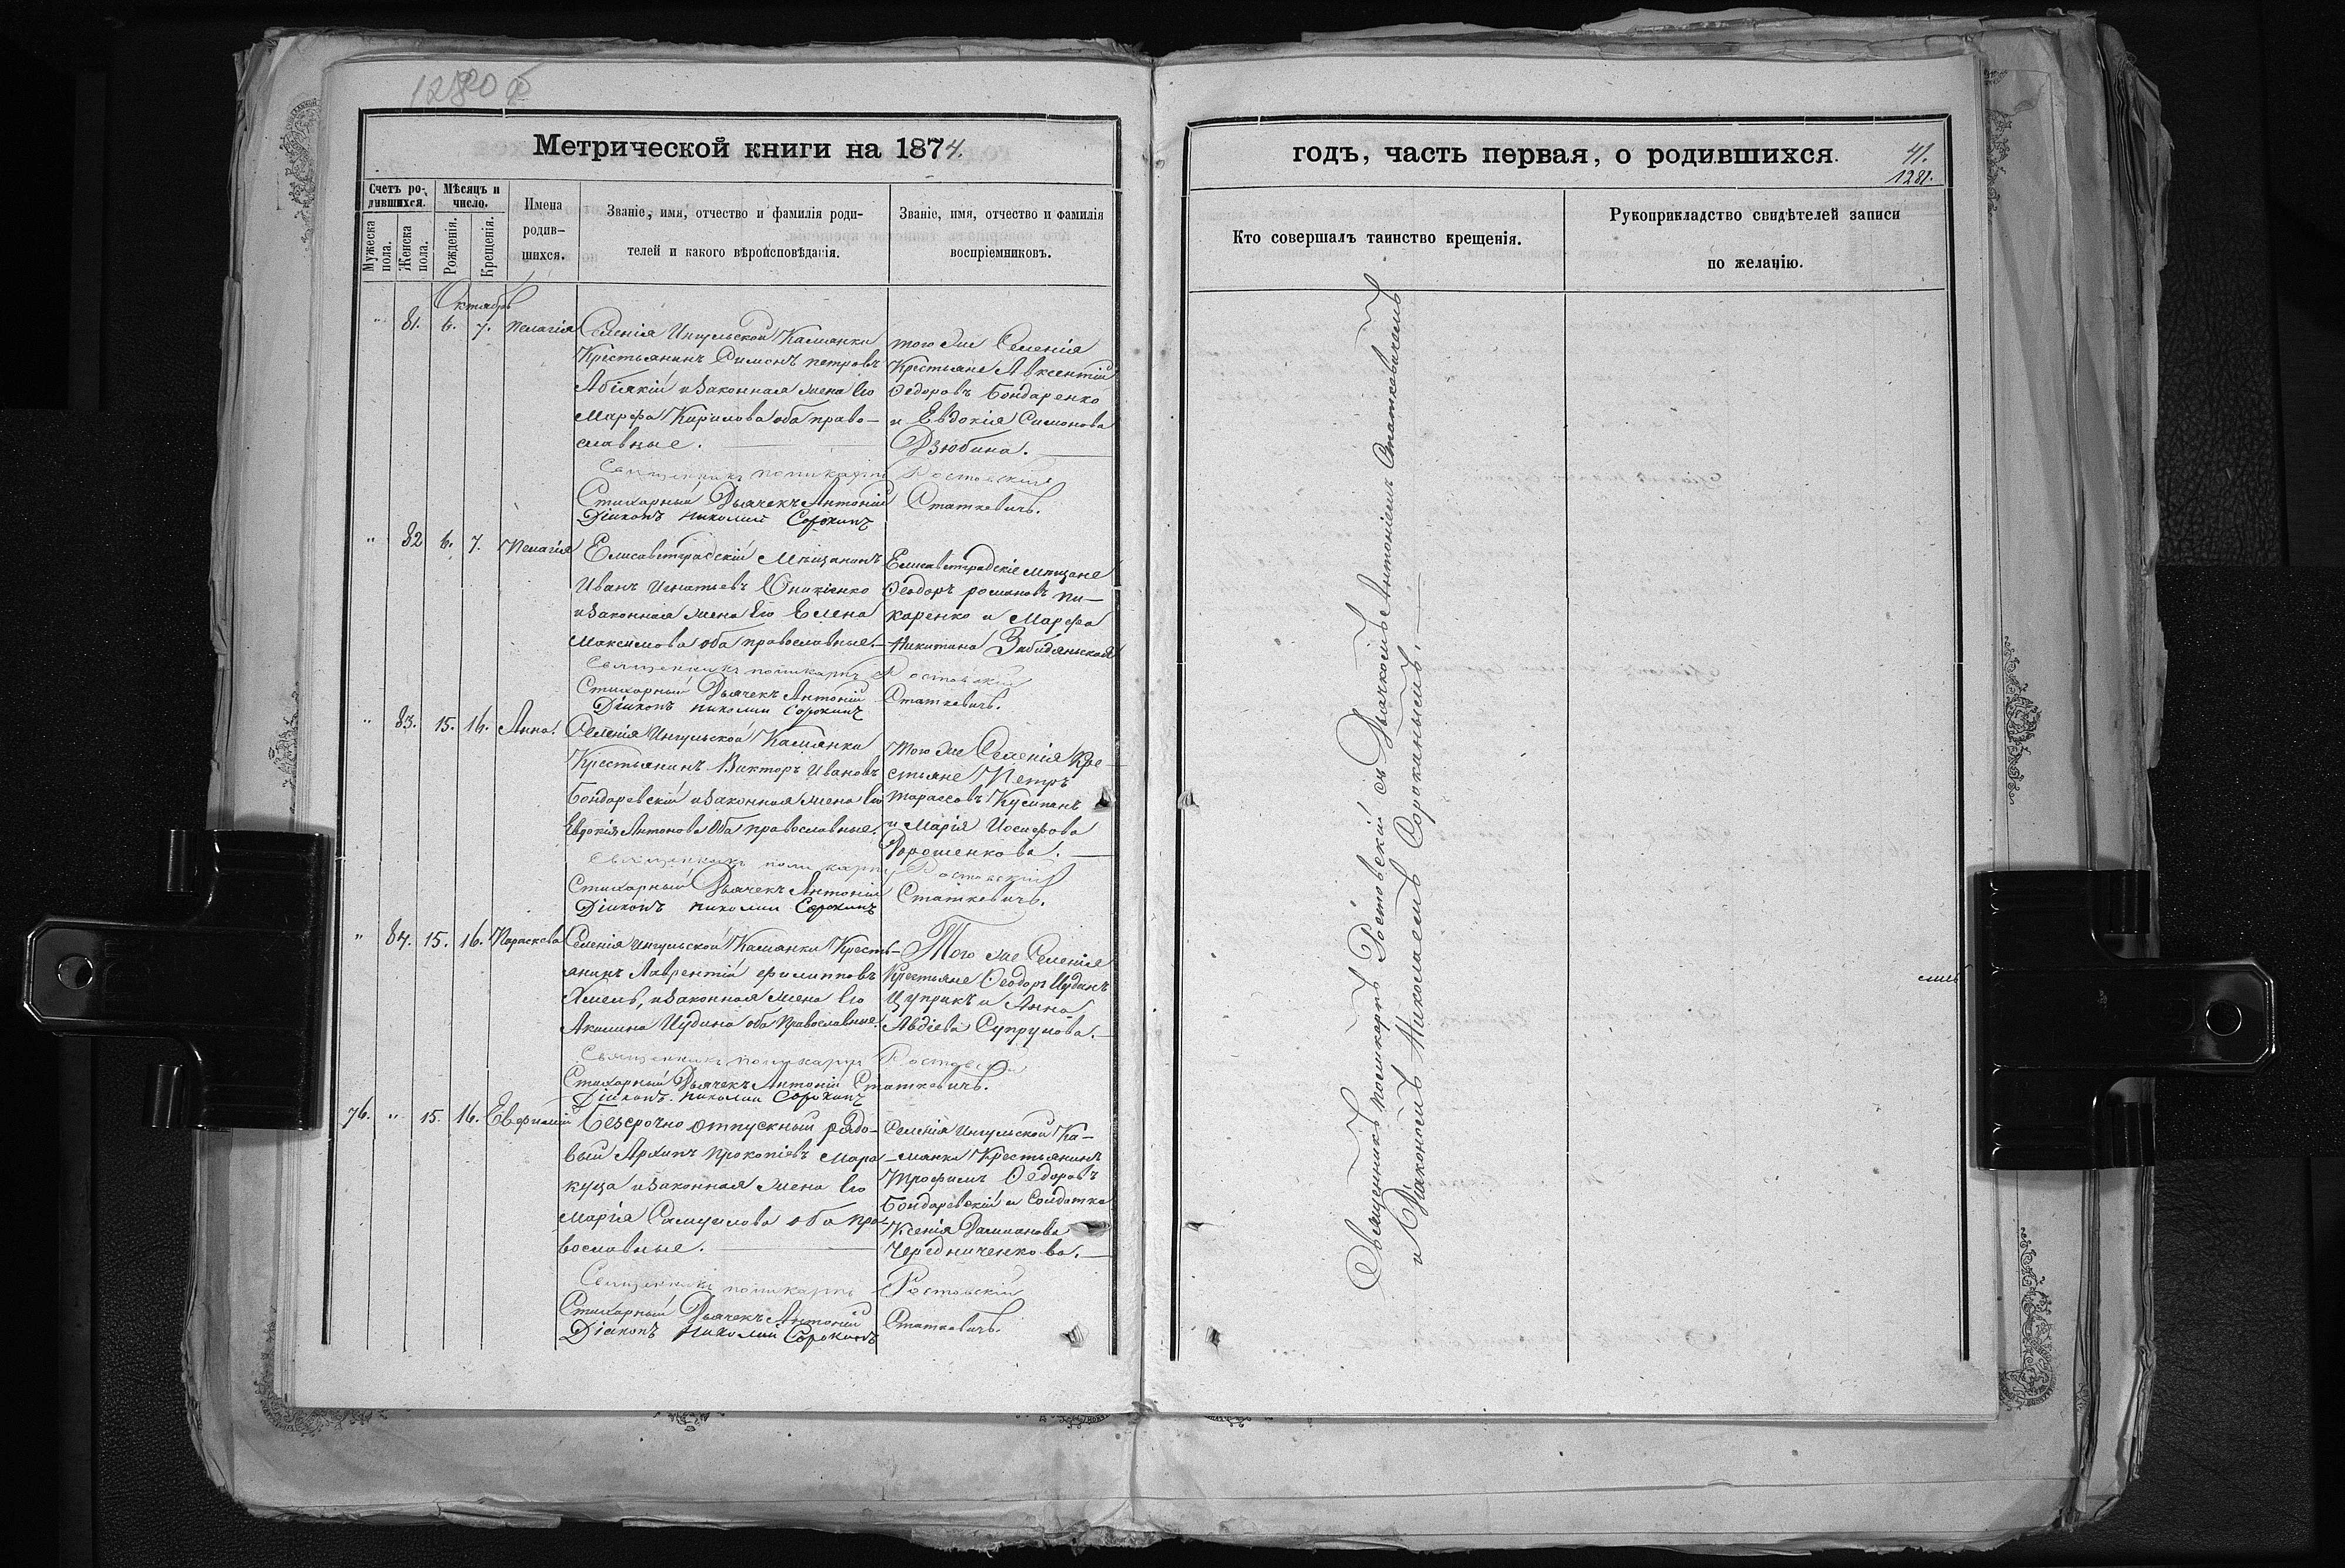 Метрической книги на 1874.
Счетъ родившихся.
Мѣсяцъ и число.
Имена родившихся.
Званіе, имя, отчество и фамилія роди-
телей и какого вѣроисповѣданія.
Званіе, имя, отчество и фамилія
воспріемниковъ.
Мужеска пола.
Женска пола.
Рожденія.
Крещенія.
Октябрь
" 81. 6. 7. Пелагія
Селенія Ингульской Камянки
Крестьянинъ Симонъ Петровъ
и законная жена Его
Марфа Кирилова оба право-
славные.
того же Селенія
Крестьяне Авксентій
Ѳедоровъ Бондаренко
и Евдокія Симонова
Дзюбина.
Священникъ Поликарпъ Ростовскій
Стихарный Дьячекъ Антоній Статкевичъ.
Діаконъ Николай Сорокинъ
" 82 6. 7. Пелагія
Елисаветградскій Мѣщанинъ
Иванъ Игнатьевъ Оникіенко
и законная жена Его Елена
Максимова оба православные.
Елисаветградскіе мѣщане
Ѳеодоръ Романовъ Пи-
каренко и Марфа
Никитина
Священникъ Поликарпъ Ростовскій
Стихарный Дьячекъ Антоній Статкевичъ.
Діаконъ Николай Сорокинъ
" 83. 15. 16. Анна.
Селенія Ингульской Камянки
Крестьянинъ Викторъ Ивановъ
Бондаревскій и законная жена Его
Евдокія Антонова оба православные.
того же Селенія Кре-
стьяне Петръ
Тарасовъ
и Марія Іосифова
Дорошенкова.
Священникъ Поликарпъ Ростовскій
Стихарный Дьячекъ Антоній Статкевичъ.
Діаконъ Николай Сорокинъ
" 84. 15. 16. Параскева
Селенія Ингульской Камянки Кресть-
янинъ Лаврентій Филипповъ
Хмель, и законная жена Его
Акилина Иудина оба Православные.
Того же Селенія
Крестьяне Ѳеодоръ Иудинъ
Цуприкъ и Анна
Авдіева Супрунова.
Священникъ Поликарпъ Ростовскій
Стихарный Дьячекъ Антоній Статкевичъ.
Діаконъ Николай Сорокинъ
76. " 15. 16. Евфимій
Безсрочно отпускный рядо-
вый Архипъ Прокопіевъ Мара-
куца и законная жена Его
Марія Самуилова оба пра-
вославные.
Селенія Ингульской Ка-
мянки Крестьянинъ
Трофимъ Ѳедоровъ
Бондаревскій и Солдатка
Ксенія Даміанова
Чередниченкова.
Священникъ Поликарпъ Ростовскій
Стихарный Дьячекъ Антоній Статкевичъ.
Діаконъ Николай Сорокинъ
годъ, часть первая, о родившихся.
41.
1281.
Кто совершалъ таинство крещенія.
Рукоприкладство свидѣтелей записи
по желанію.
Священникъ Поликарпъ Ростовскій съ Дьячкомъ Антоніемъ Статкевичемъ
и Діакономъ Николаемъ Сорокинымъ.